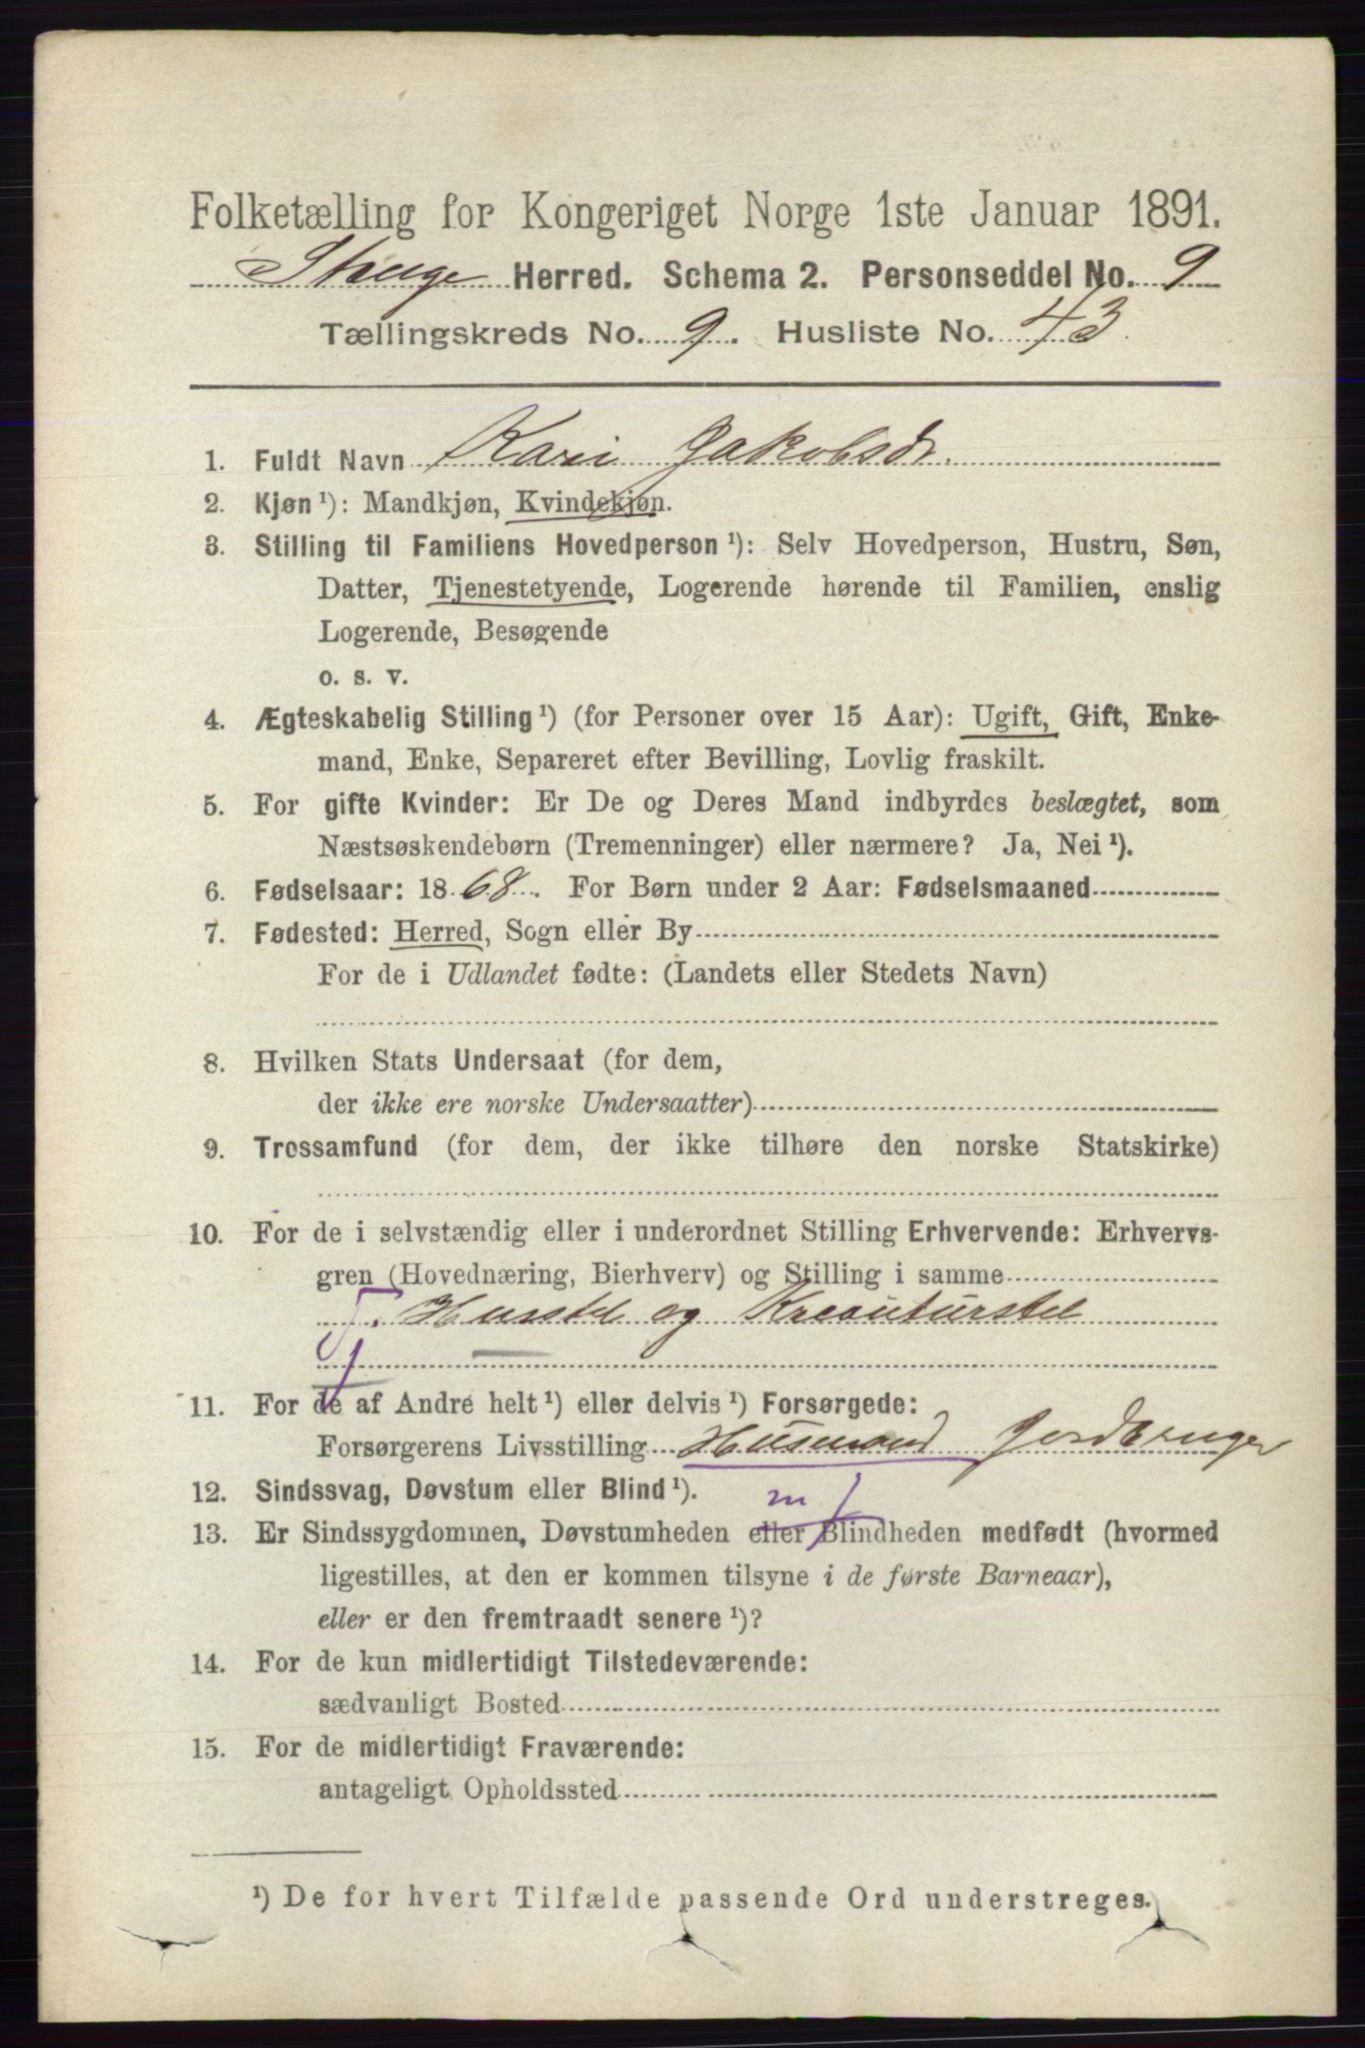 Folketælling for Kongeriget Norge 1ste Januar 1891.
Stange Herred. Schema 2. Personseddel No. 9
Tællingskreds No. 9. Husliste No. 43.
1. Fuldt Navn Kari Jakobsdr.
2. Kjøn ¹): Mandkjøn, Kvindekjøn.
3. Stilling til Familiens Hovedperson ¹): Selv Hovedperson, Hustru, Søn,
Datter, Tjenestetyende, Logerende hørende til Familien, enslig
Logerende, Besøgende
o. s. v.
4. Ægteskabelig Stilling ¹) (for Personer over 15 Aar): Ugift, Gift, Enke-
mand, Enke, Separeret efter Bevilling, Lovlig fraskilt.
5. For gifte Kvinder: Er De og Deres Mand indbyrdes beslægtet, som
Næstsøskendebørn (Tremenninger) eller nærmere? Ja, Nei ¹).
6. Fødselsaar: 1868. For Børn under 2 Aar: Fødselsmaaned
7. Fødested: Herred, Sogn eller By
For de i Udlandet fødte: (Landets eller Stedets Navn)
8. Hvilken Stats Undersaat (for dem,
der ikke ere norske Undersaatter)
9. Trossamfund (for dem, der ikke tilhøre den norske Statskirke)
10. For de i selvstændig eller i underordnet Stilling Erhvervende: Erhvervs-
gren (Hovednæring, Bierhverv) og Stilling i samme
T. Husstel og Kreaturstel
11. For de af Andre helt ¹) eller delvis ¹) Forsørgede:
Forsørgerens Livsstilling Husmand Jordbruger
12. Sindssvag, Døvstum eller Blind ¹).
m
13. Er Sindssygdommen, Døvstumheden eller Blindheden medfødt (hvormed
ligestilles, at den er kommen tilsyne i de første Barneaar),
eller er den fremtraadt senere ¹)?
14. For de kun midlertidigt Tilstedeværende:
sædvanligt Bosted
15. For de midlertidigt Fraværende:
antageligt Opholdssted
¹) De for hvert Tilfælde passende Ord understreges.